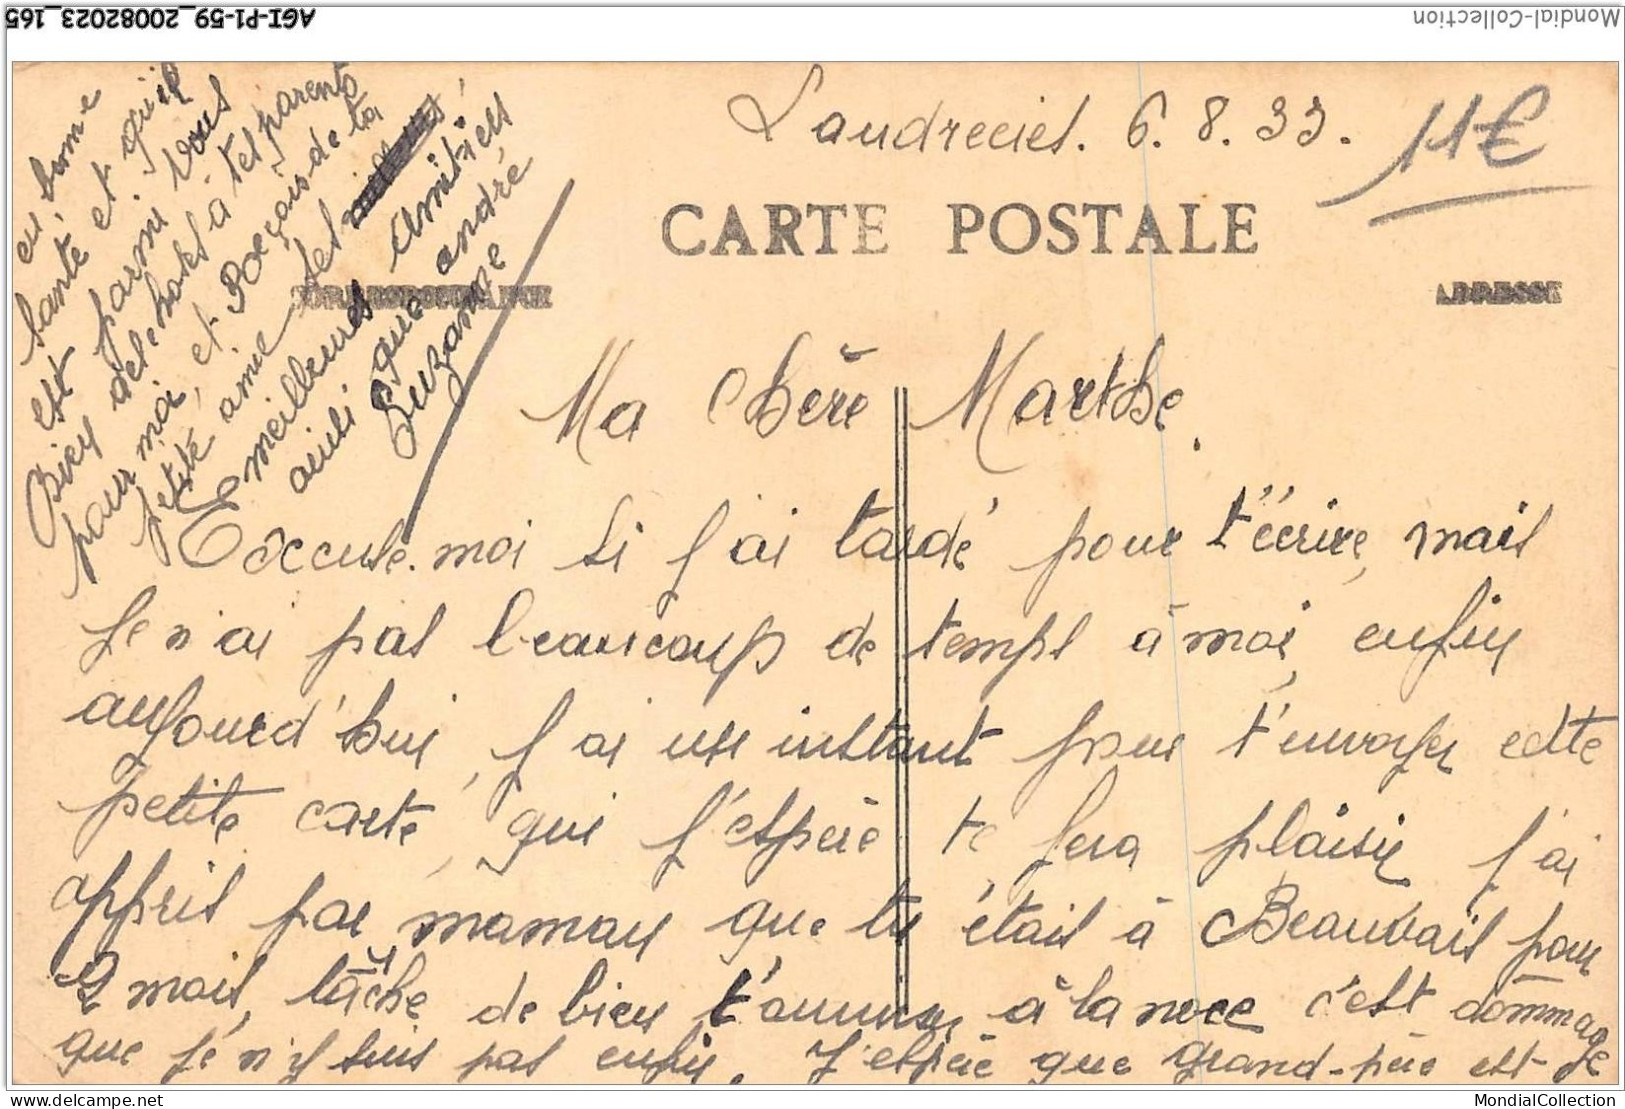 AGI-P1-59_20082023_165
Mondial-Collection
Landrecies. 6.8.33.
11€
CARTE POSTALE
CORRESPONDANCE
ADRESSE
Ma Chère Marthe.
Excuse-moi si j'ai tardé pour t'écrire, mais
je n'ai pas beaucoup de temps à moi, enfin
aujourd'hui, j'ai un instant pour t'envoyer cette
petite carte, qui j'espère te fera plaisir j'ai
appris par maman que tu étais à Beauvais pour
2 mois, tâche de bien t'amuser à la noce c'est dommage
que je n'y suis pas enfin. J'espère que grand-père est
en bonne
santé et qu'il
est parmi vous
Bien des choses à tes parents
pour moi, et Reçois de ta
petite amie ses
meilleures Amitiés
ainsi que andré
Suzanne
MondialCollection
www.delcampe.net